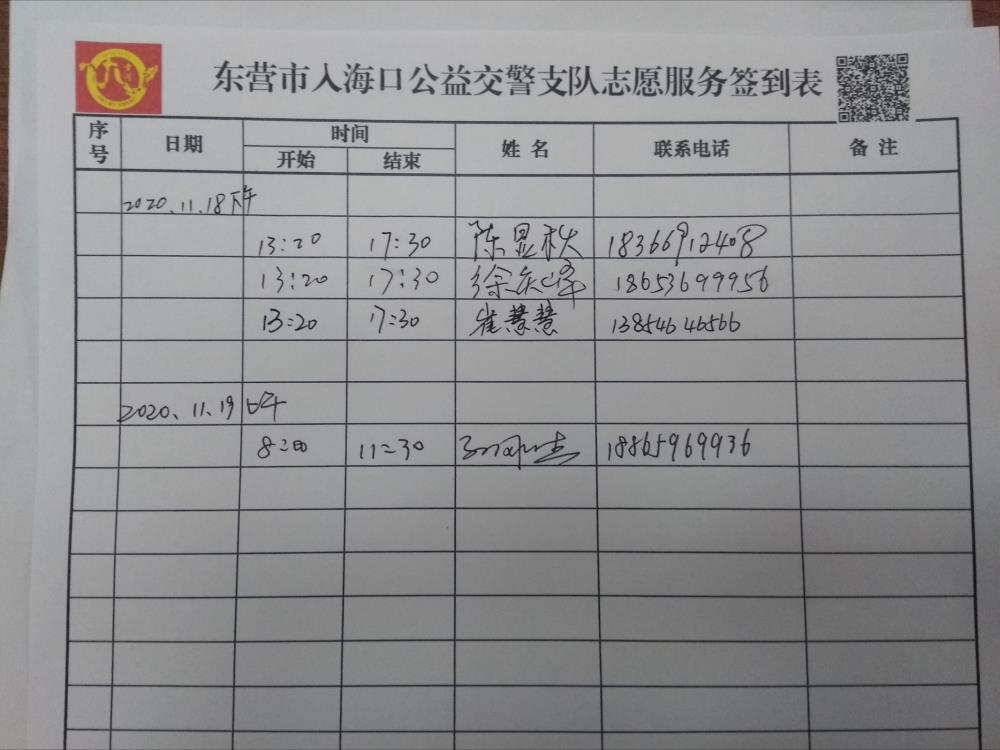 东营市入海口公益交警支队志愿服务签到表
序号 日期 时间 姓名 联系电话 备注
开始 结束
2020.11.18下午
13:20 17:30 陈显秋 18366912408
13:20 17:30 徐庆峰 18653699956
13:20 17:30 崔慧慧 13854646566
2020.11.19
8:00 11:30 18865969936